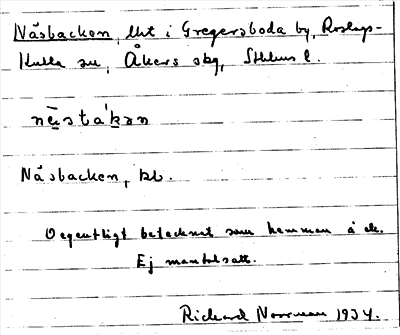 Näsbacken, lht i Gregersboda by, Roslags-
Kulla sn, Åkers skg, Sthlms l.
Näsbacken, kb.
Oegentligt betecknat som hemman å ek.
Ej mantalsatt.
Richard Norrman 1934.